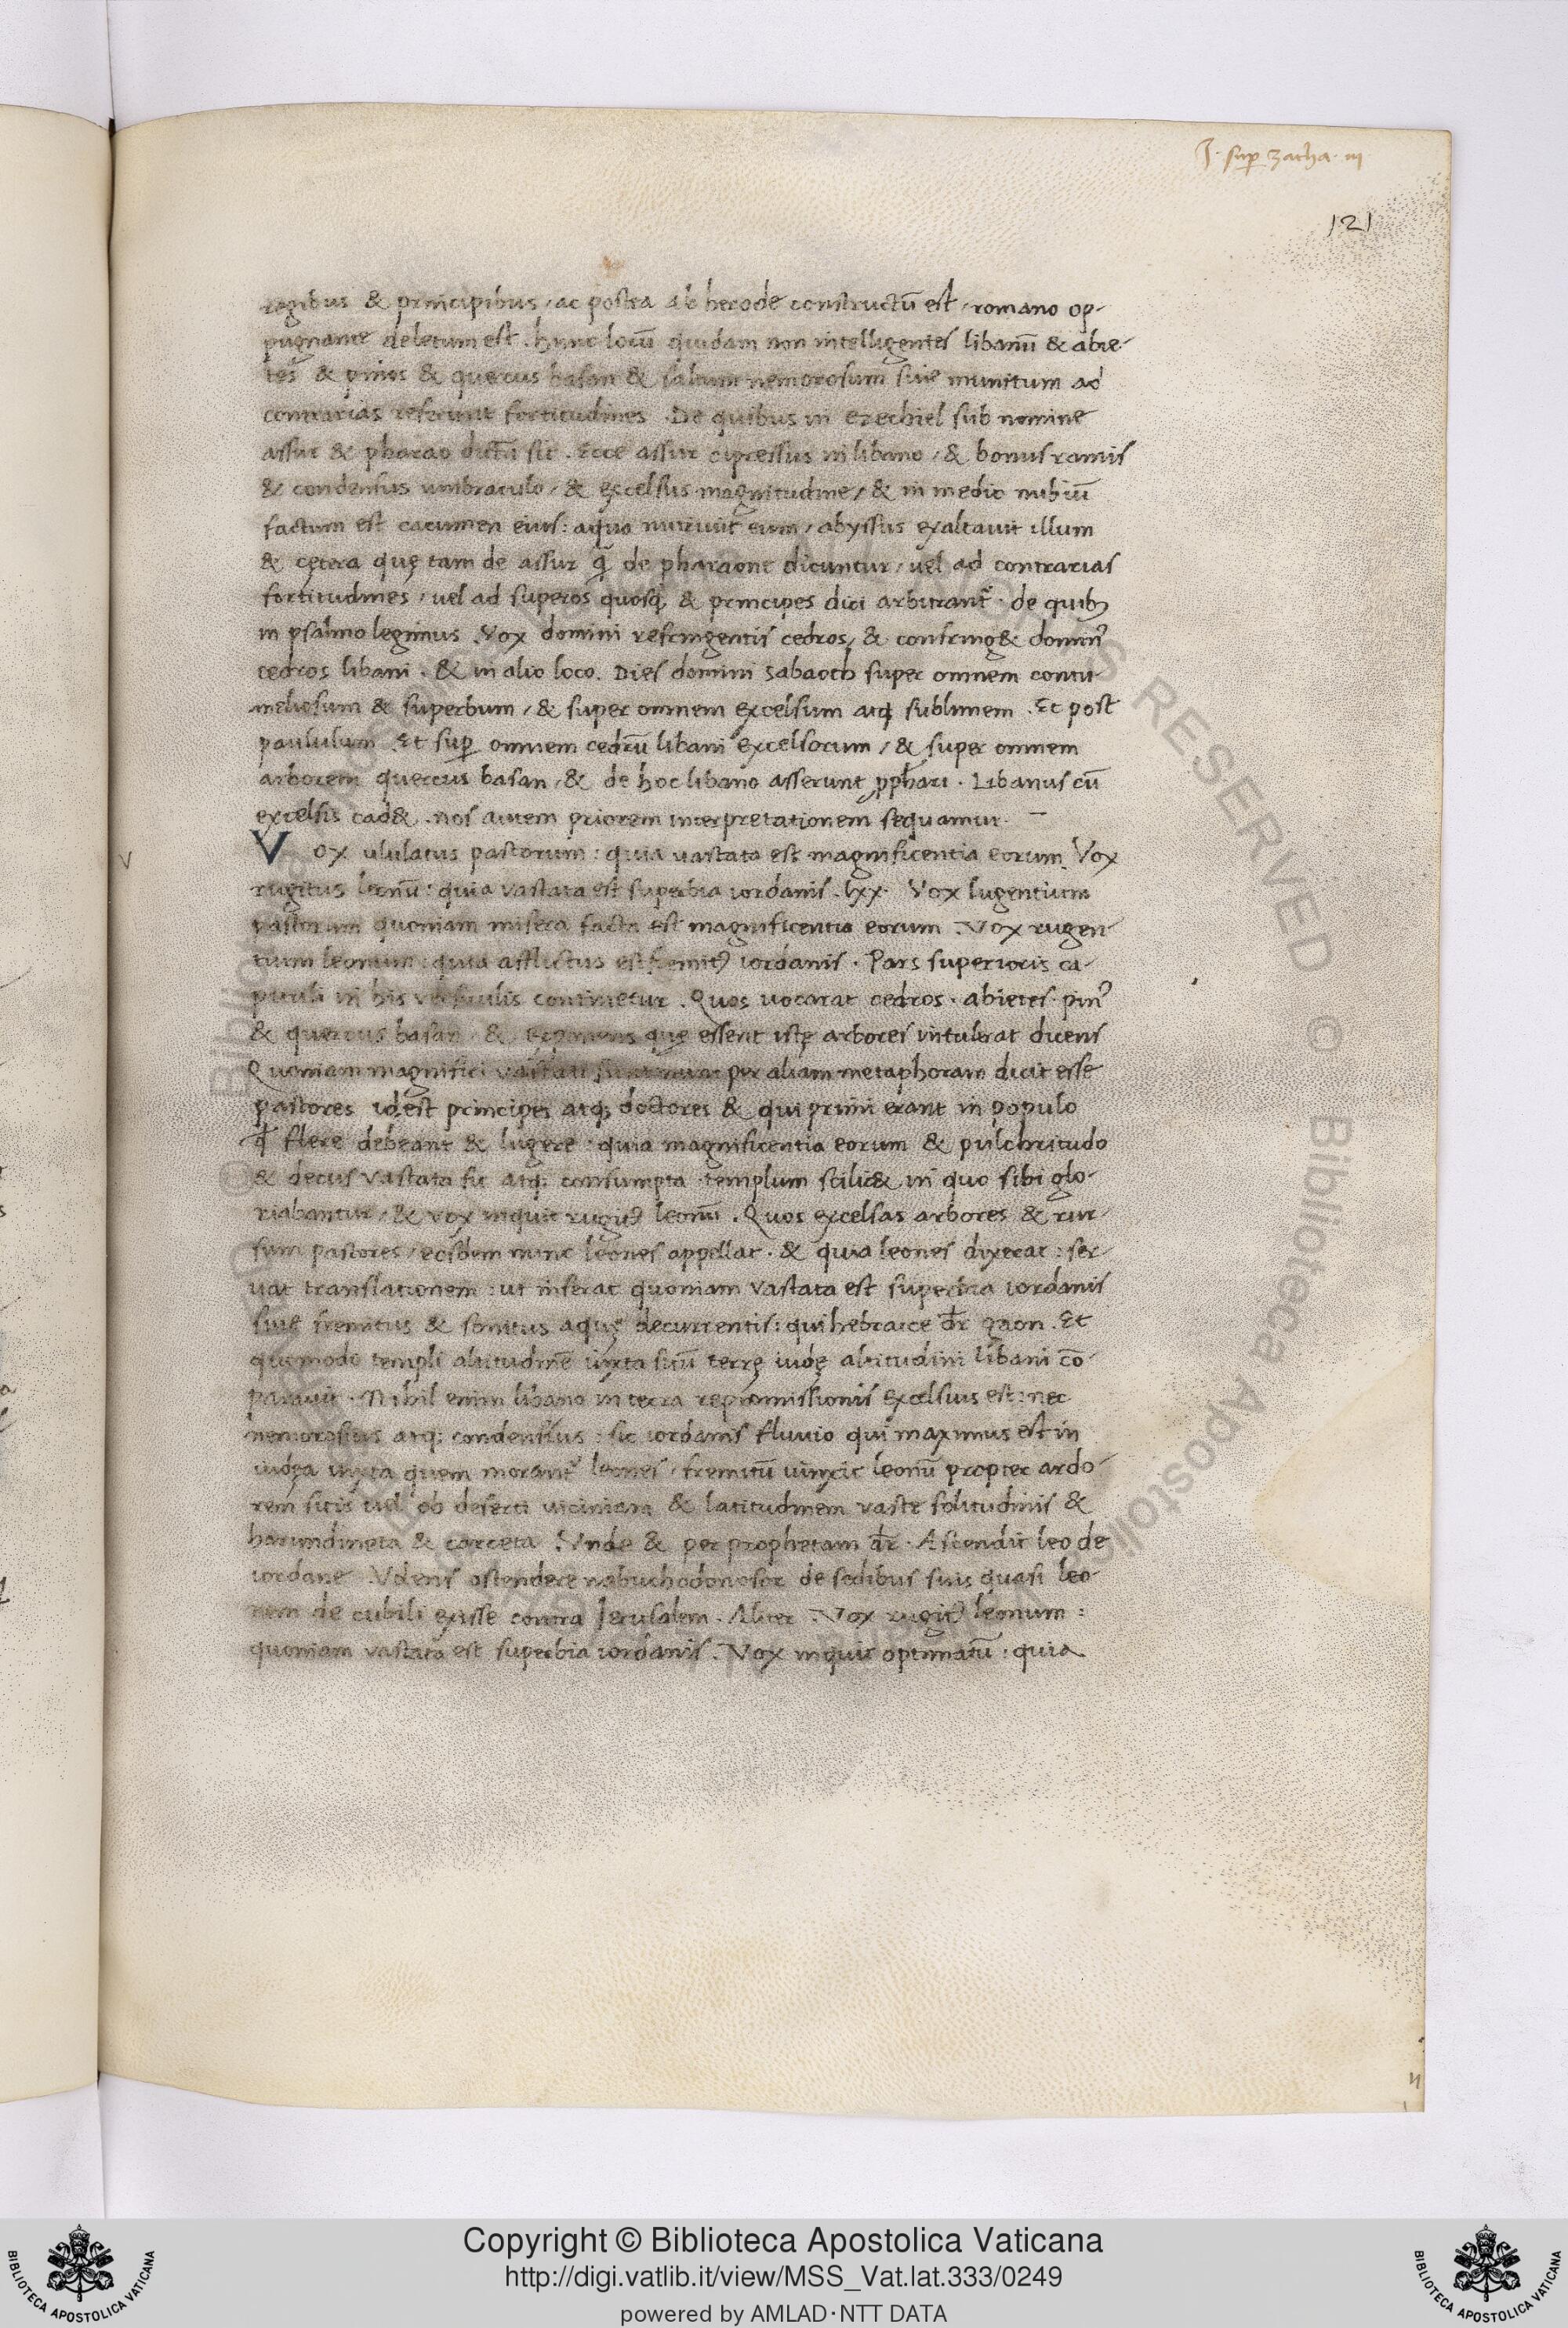 J. sup̱ zacha. iii
121
regibus & principibus, ac postea ab herode constructū est, romano op-
pugnante deletum est. hunc locū quidam non intelligentes libanū & abie-
tes & pinos & quercus basan & saltum nemorosum siue munitum ad
contrarias referunt fortitudines. De quibus in ezechiel sub nomine
assur & pharao dictū sit. Ecce assur cipressus in libano, & bonus ramis
& condensus umbraculo, & excelsus magnitudine, & in medio nubiū
factum est cacumen eius: aqua nutriuit eum, abyssus exaltauit illum
& cętera quę tam de assur q̃ de pharaone dicuntur, uel ad contrarias
fortitudines, uel ad superos quosq; & principes dici arbitrant̃. de quibȝ
in psalmo legimus. Vox domini refringentis cedros, & confring& domin᾽
cedros libani. & in alio loco. Dies domini sabaoth super omnem contu-
meliosum & superbum, & super omnem excelsum atq; sublimem. Et post
paululum Et sup̱ omnem cedrū libani excelsorum, & super omnem
arborem quercus basan, & de hoc libano asserunt ꝓph̄ari. Libanus cū
excelsis cad&. nos autem priorem interpretationem sequamur. –
V
Vox ululatus pastorum: quia vastata est magnificentia eorum. Vox
rugitus leonū: quia vastata est superbia iordanis. lxx. Vox lugentium
pastorum quoniam misera facta est magnificentia eorum. Vox rugen-
tium leonum: quia afflictus est fremit᾽ iordanis. Pars superioris ca-
pituli in his versiculis continetur. Quos uocarat cedros. abietes. pin᾽
& quercus basan & exponens quę essent istę arbores intulerat dicens
Quoniam magnifici vastati sunt nunc per aliam metaphoram dicit esse
pastores id est principes atq; doctores & qui primi erant in populo
ꝙ flere debeant & lugere: quia magnificentia eorum & pulchritudo
& decus vastata sit atq; consumpta templum scilic& in quo sibi glo-
riabantur, & vox inquit rugit᾽ leonū. Quos excelsas arbores & rur-
sum pastores, eosdem nunc leones appellat. & quia leones dixerat: ser-
uat translationem: ut inferat quoniam vastata est superbia iordanis
siue fremitus & sonitus aquę decurrentis: qui hebraice d̄r gaon. Et
quomodo templi altitudinē iuxta sitū terrę iudę altitudini libani cō-
parauit. Nihil enim libano in terra repromissionis excelsius est: nec
nemorosius atq; condensius: sic iordanis fluuio qui maximus est in
iudęa iuxta quem morant̃ leones, fremitū iunxit leonū propter ardo-
rem sitis uel ob deserti uiciniam & latitudinem vaste solitudinis &
harundineta & carceta. Vnde & per prophetam d̄r. Ascendit leo de
iordane. Volens ostendere nabuchodonosor de sedibus suis quasi leo-
nem de cubili exisse contra Ierusalem. Aliter. Vox rugit᾽ leonum:
quoniam vastata est superbia iordanis. Vox inquit optimatū: quia
Copyright © Biblioteca Apostolica Vaticana
http://digi.vatlib.it/view/MSS_Vat.lat.333/0249
powered by AMLAD·NTT DATA
BIBLIOTECA APOSTOLICA VATICANA
BIBLIOTECA APOSTOLICA VATICANA